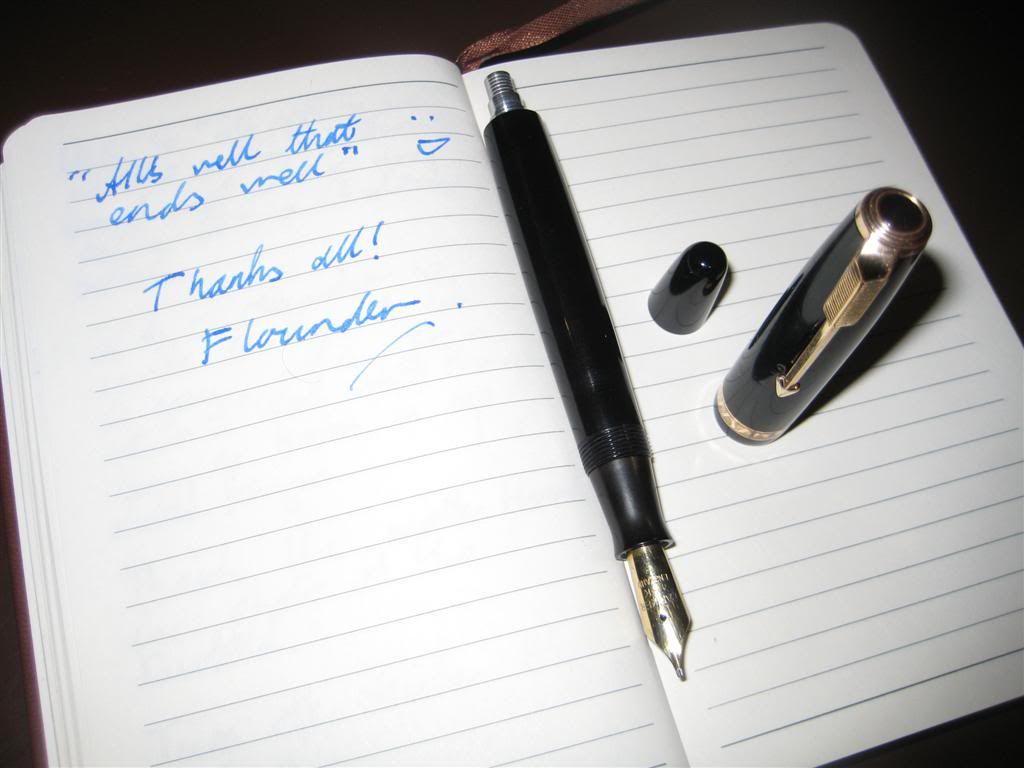 "Alls well that
ends well" :D
Thanks all!
Flounder.